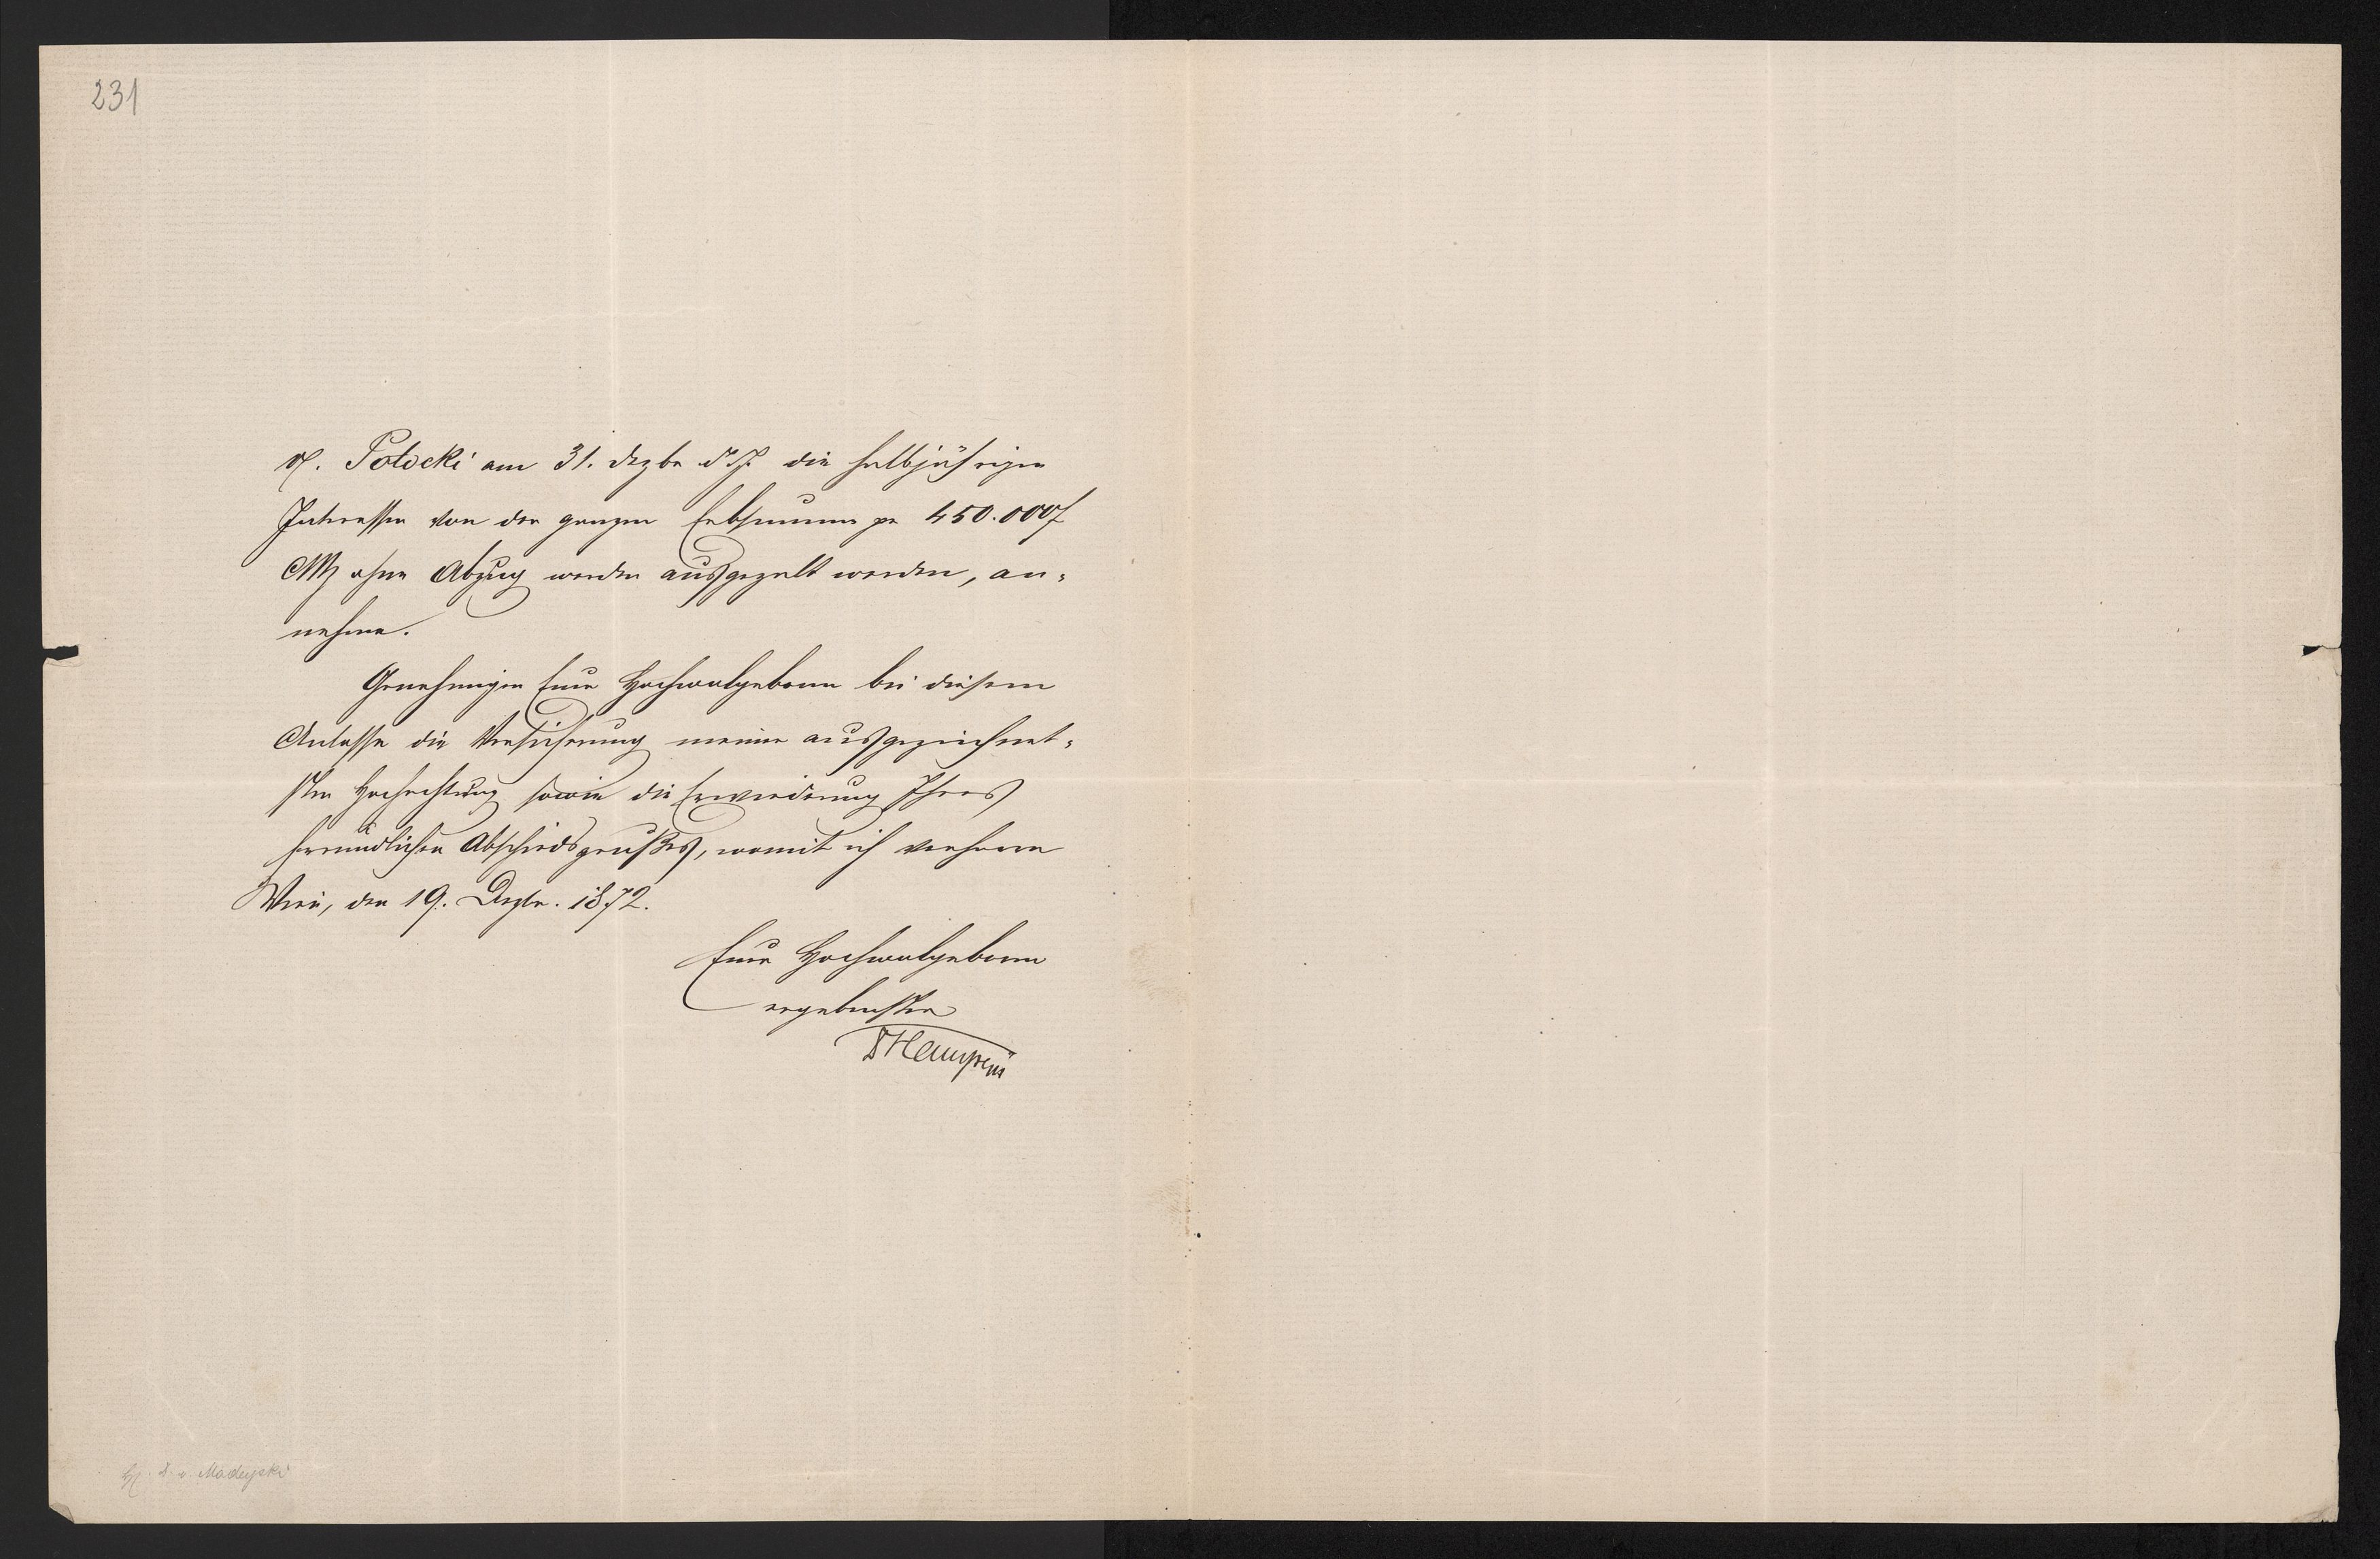 231
v. Potocki am 31. Dezbr d. J. die halbjährigen
Interessen von der ganzen Erbsumme pr 450.000 f
CMz ohne Abzug werden ausgezalt werden, an-
nehme.
Genehmigen Euer Hochwolgeboren bei diesem
Anlasse die Versicherung meiner ausgezeichnet-
sten Hochachtung sowie die Erwiederung Ihres
freundlichen Abschiedsgrußes, womit ich verharre
Wien, den 19. Dezbr. 1872.
Euer Hochwolgeboren
ergebenster
Madeyski